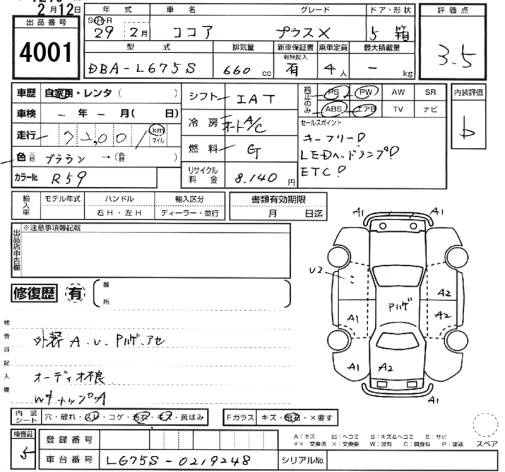 2月12日
出品番号
4001
年式 車名 グレード ドア・形状
29年2月 ココア プラスX 5 箱
型式 排気量 新車保証書 乗車定員 最大積載量
有無記入
DBA-L675S 660cc 有 4人 - kg
評価点
3.5
車歴 自家用・レンタ( )
車検 - 年 - 月( 日)
走行 km マイル
色 ブラウン → ( )
カラーNo. R59
シフト IAT
冷房 A/C
燃料 G
リサイクル料金 8.140円
PS PW AW SR
ABS エアB TV ナビ
セールスポイント
キーフリー
ETC
内装評価
b
輸入車 モデル年式 ハンドル 輸入区分
右H・左H ディーラー・並行
書類有効期限
月 日迄
出品店申告欄
※注意事項等記載
修復歴 有 箇所
検査員記入欄
外装 A.U.Pハゲ.アセ
オーディオ不良
Wキャップ A
A1 A1
U2
A1 A2
Pハゲ
A1 A2 A2
A1 A1
内装シート 穴・破れ・ コゲ・ ・黄ばみ
Fガラス キズ・ ・×要す
A:キズ S:キズ&ヘコミ
××:交換済 ×:要交換 P:塗装
スペア
検査員
5
登録番号
車台番号 L675S-0219248 シリアルNo.